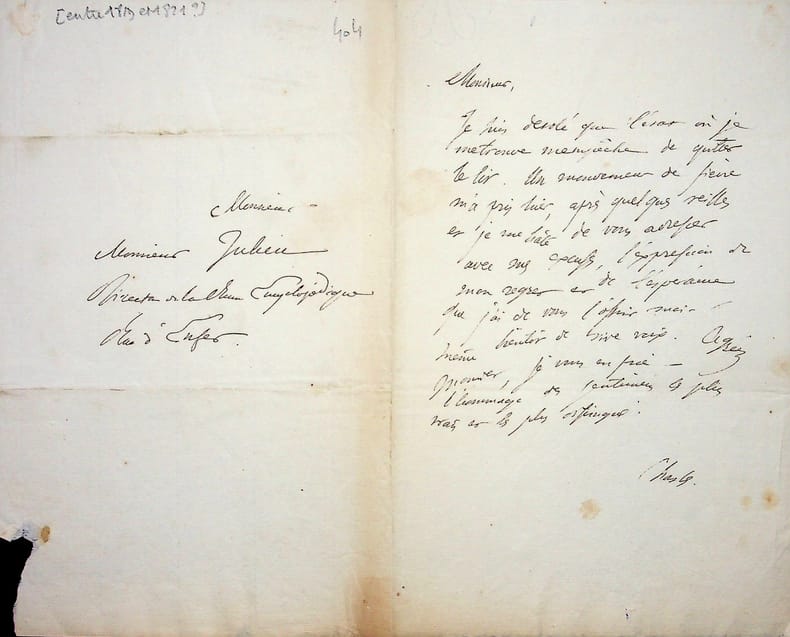 [entre 1819 et 1821?]
404
Monsieur
Monsieur Julien
Directeur de la Revue Encyclopédique
Rue d'Enfer.
Monsieur,
Je suis desolé que l'état où je
me trouve m'empêche de quitter
le lit. Un mouvement de fièvre
m'a pris hier, après quelques veilles
et je me hâte de vous adresser
avec mes excuses, l'expression de
mon regret et de l'espérance
que j'ai de vous l'offrir moi-
même bientôt de vive voix. Agréez
Monsieur, je vous en prie —
l'hommage des sentimens les plus
vrais et les plus distingués.
Chasles.